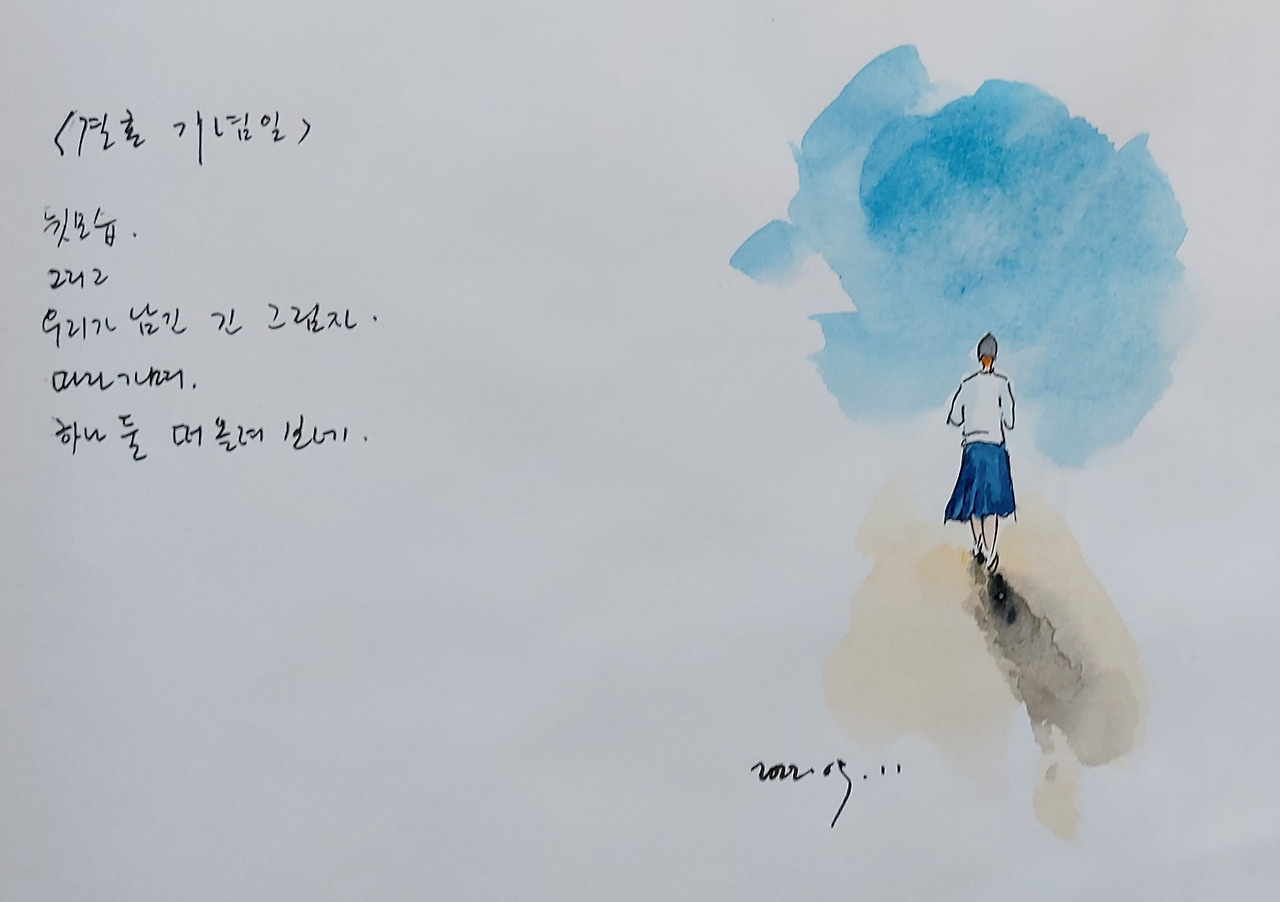 <결혼 기념일>
뒷모습.
그리고
우리가 남긴 긴 그림자.
따라가며.
하나 둘 떠올려 보네.
2022.05.11